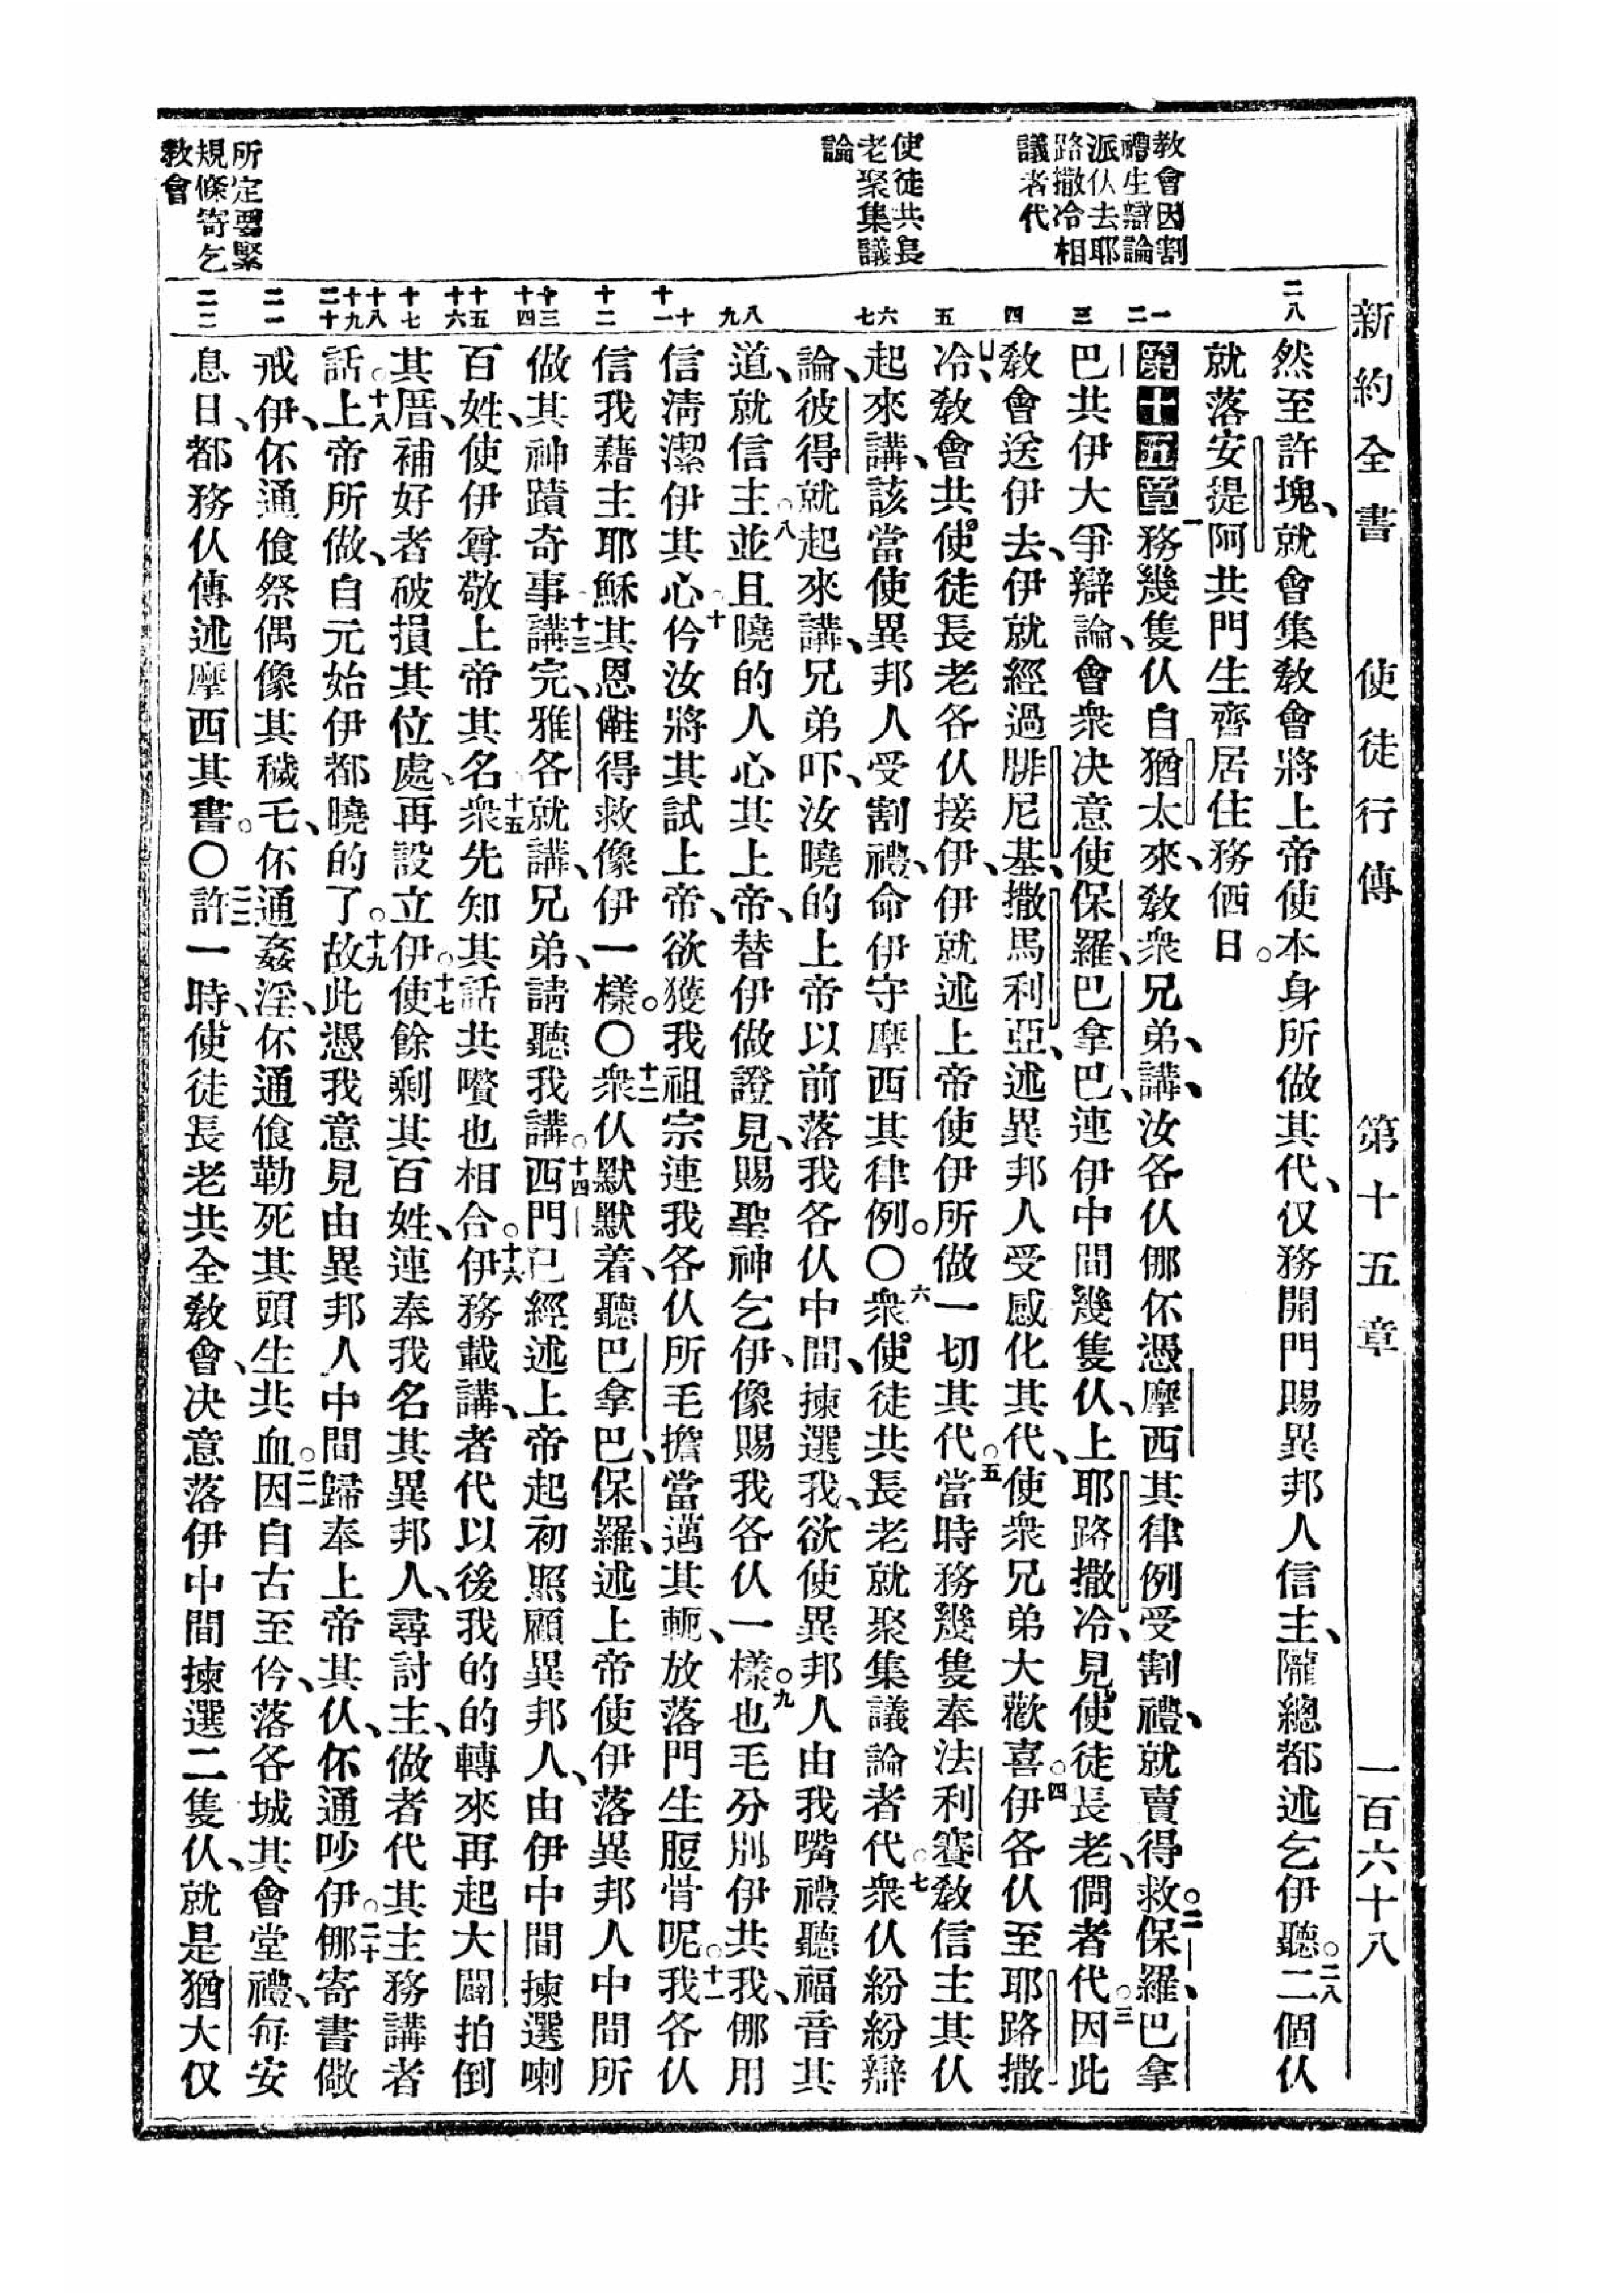 新約全書 使徒行傳 第十五章 一百六十八
教會因割
禮生辯論
派仈去耶
路撒冷相
議者代
使徒共長
老聚集議
論
所定要緊
規條寄乞
教會
二八
一
二
三
四
五
六
七
八
九
十
十一
十二
十三
十四
十五
十六
十七
十八
十九
二十
二一
二二
然至許塊、就會集教會將上帝使本身所做其代、仅務開門賜異邦人信主、隴總都述乞伊聽。二八二個仈
就落安提阿共門生齊居住務伵日。
第十五章一務幾隻仈自猶太來、教衆兄弟、講、汝各仈㑚伓憑摩西其律例受割禮、就賣得救。二保羅、巴拿
巴共伊大爭辯論、會衆决意使保羅、巴拿巴、連伊中間幾隻仈、上耶路撒冷、見使徒長老、僩者代。三因此
教會送伊去、伊就經過腓尼基、撒馬利亞、述異邦人受感化其代、使衆兄弟大歡喜。四伊各仈至耶路撒
冷、教會共使徒長老各仈接伊、伊就述上帝使伊所做一切其代。五當時務幾隻奉法利賽教信主其仈
起來講、該當使異邦人受割禮、命伊守摩西其律例。〇六衆使徒共長老就聚集議論者代。七衆仈紛紛辯
論、彼得就起來講、兄弟吓、汝曉的上帝以前落我各仈中間、揀選我、欲使異邦人由我嘴禮聽福音其
道、就信主。八並且曉的人心其上帝、替伊做證見、賜聖神乞伊、像賜我各仈一樣。九也毛分別伊共我、㑚用
信淸潔伊其心。十仱汝將其試上帝、欲獲我祖宗連我各仈所毛擔當邁其軛、放落門生脰骨呢。十一我各仈
信我藉主耶穌其恩儺得救像伊一樣。〇十二衆仈默默着聽巴拿巴、保羅、述上帝使伊落異邦人中間所
做其神蹟奇事。十三講完、雅各就講、兄弟、請聽我講。十四西門已經述上帝起初照顧異邦人、由伊中間揀選喇
百姓、使伊尊敬上帝其名。十五衆先知其話共嚽也相合。十六伊務載講、者代以後我的的轉來再起大闢拍倒
其厝、補好者破損其位處、再設立伊。十七使餘剩其百姓、連奉我名其異邦人、尋討主、做者代其主務講者
話。十八上帝所做、自元始伊都曉的了。十九故此憑我意見由異邦人中間歸奉上帝其仈、伓通吵伊。二十㑚寄書儆
戒伊、伓通飡祭偶像其穢乇、伓通姦淫、伓通飡勒死其頭生共血。二一因自古至仱、落各城其會堂禮、每安
息日、都務仈傳述摩西其書。〇二二許一時、使徒長老共全教會、决意落伊中間揀選二隻仈、就是猶大仅